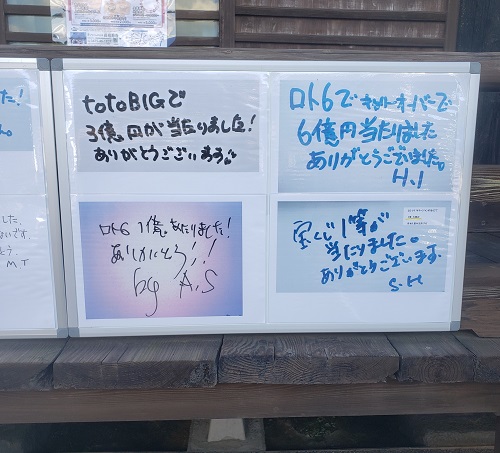 た!
した、
です。
M T
totoBIGで
3億円が当たりました!
ありがとうございます。
ロト6でキャリーオーバーで
6億円当たりました
ありがとうございました。
H.I
ロト6 1億あたりました!
ありがとう!!
by A.S
宝くじ1等が
当たりました。
ありがとうございます。
S.H